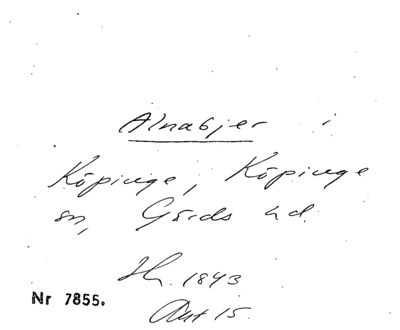 Alnabjer i
Köpinge, Köpinge
sn, Gärds hd.
1843
Nr 7855.
Akt 15